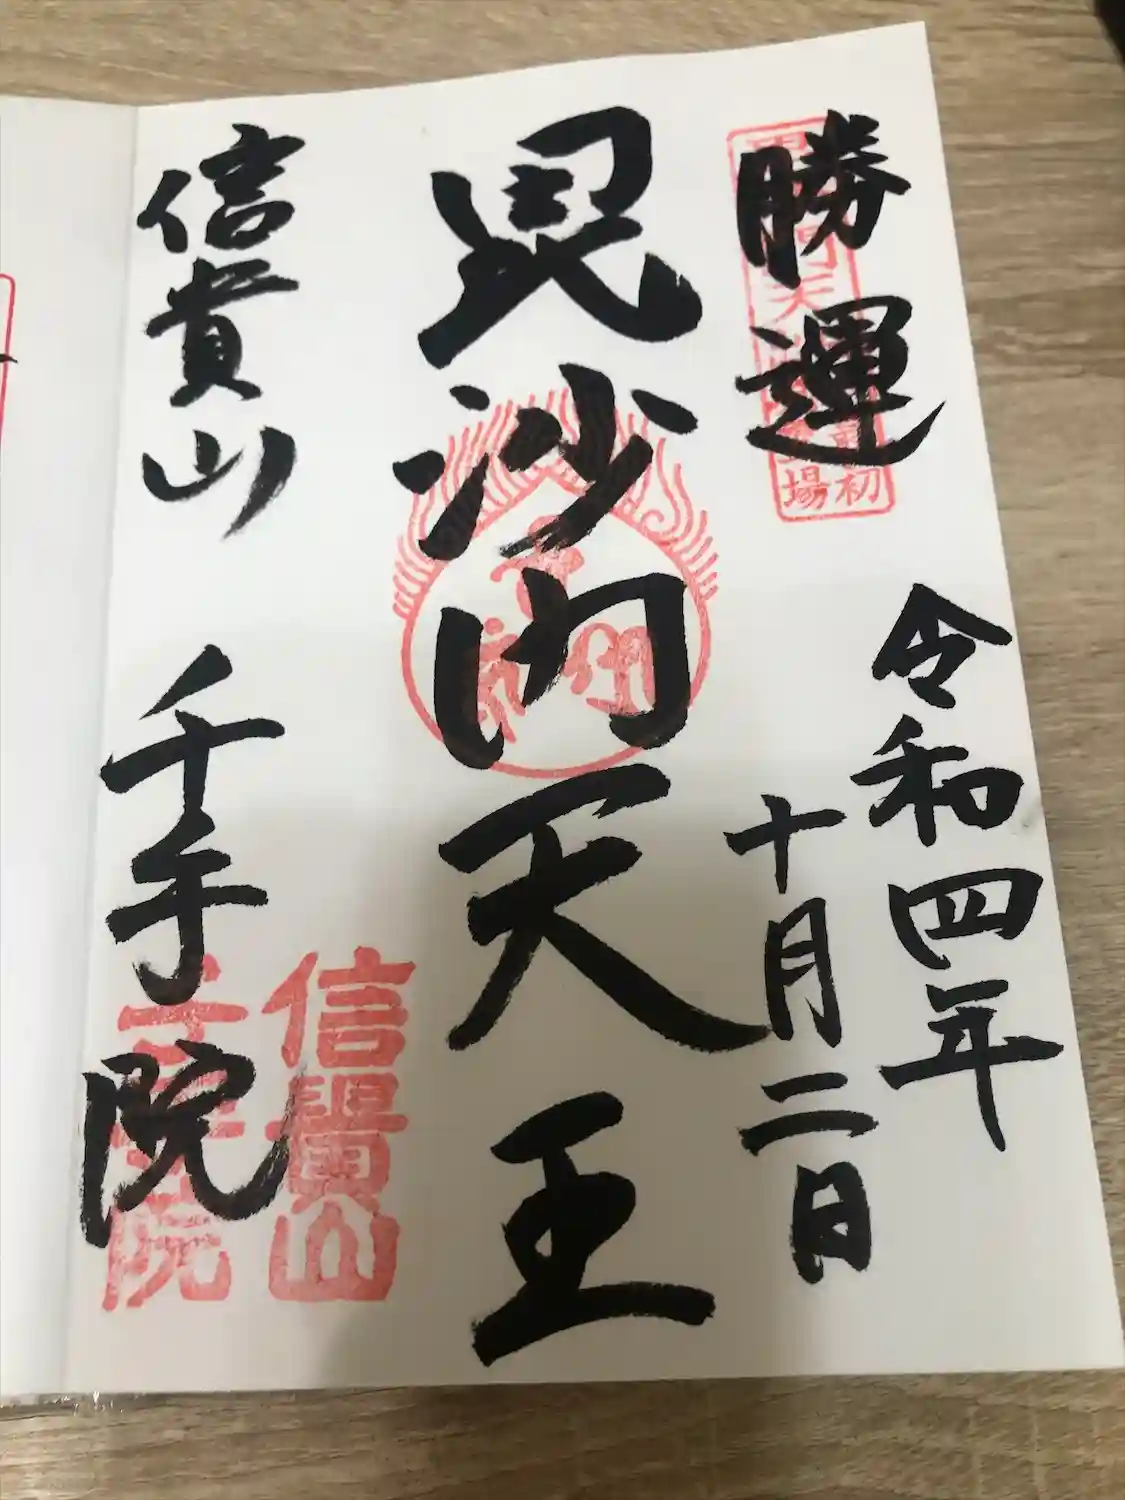 勝運
令和四年
十月二日
毘沙門天王
信貴山 千手院
信貴山
千手院